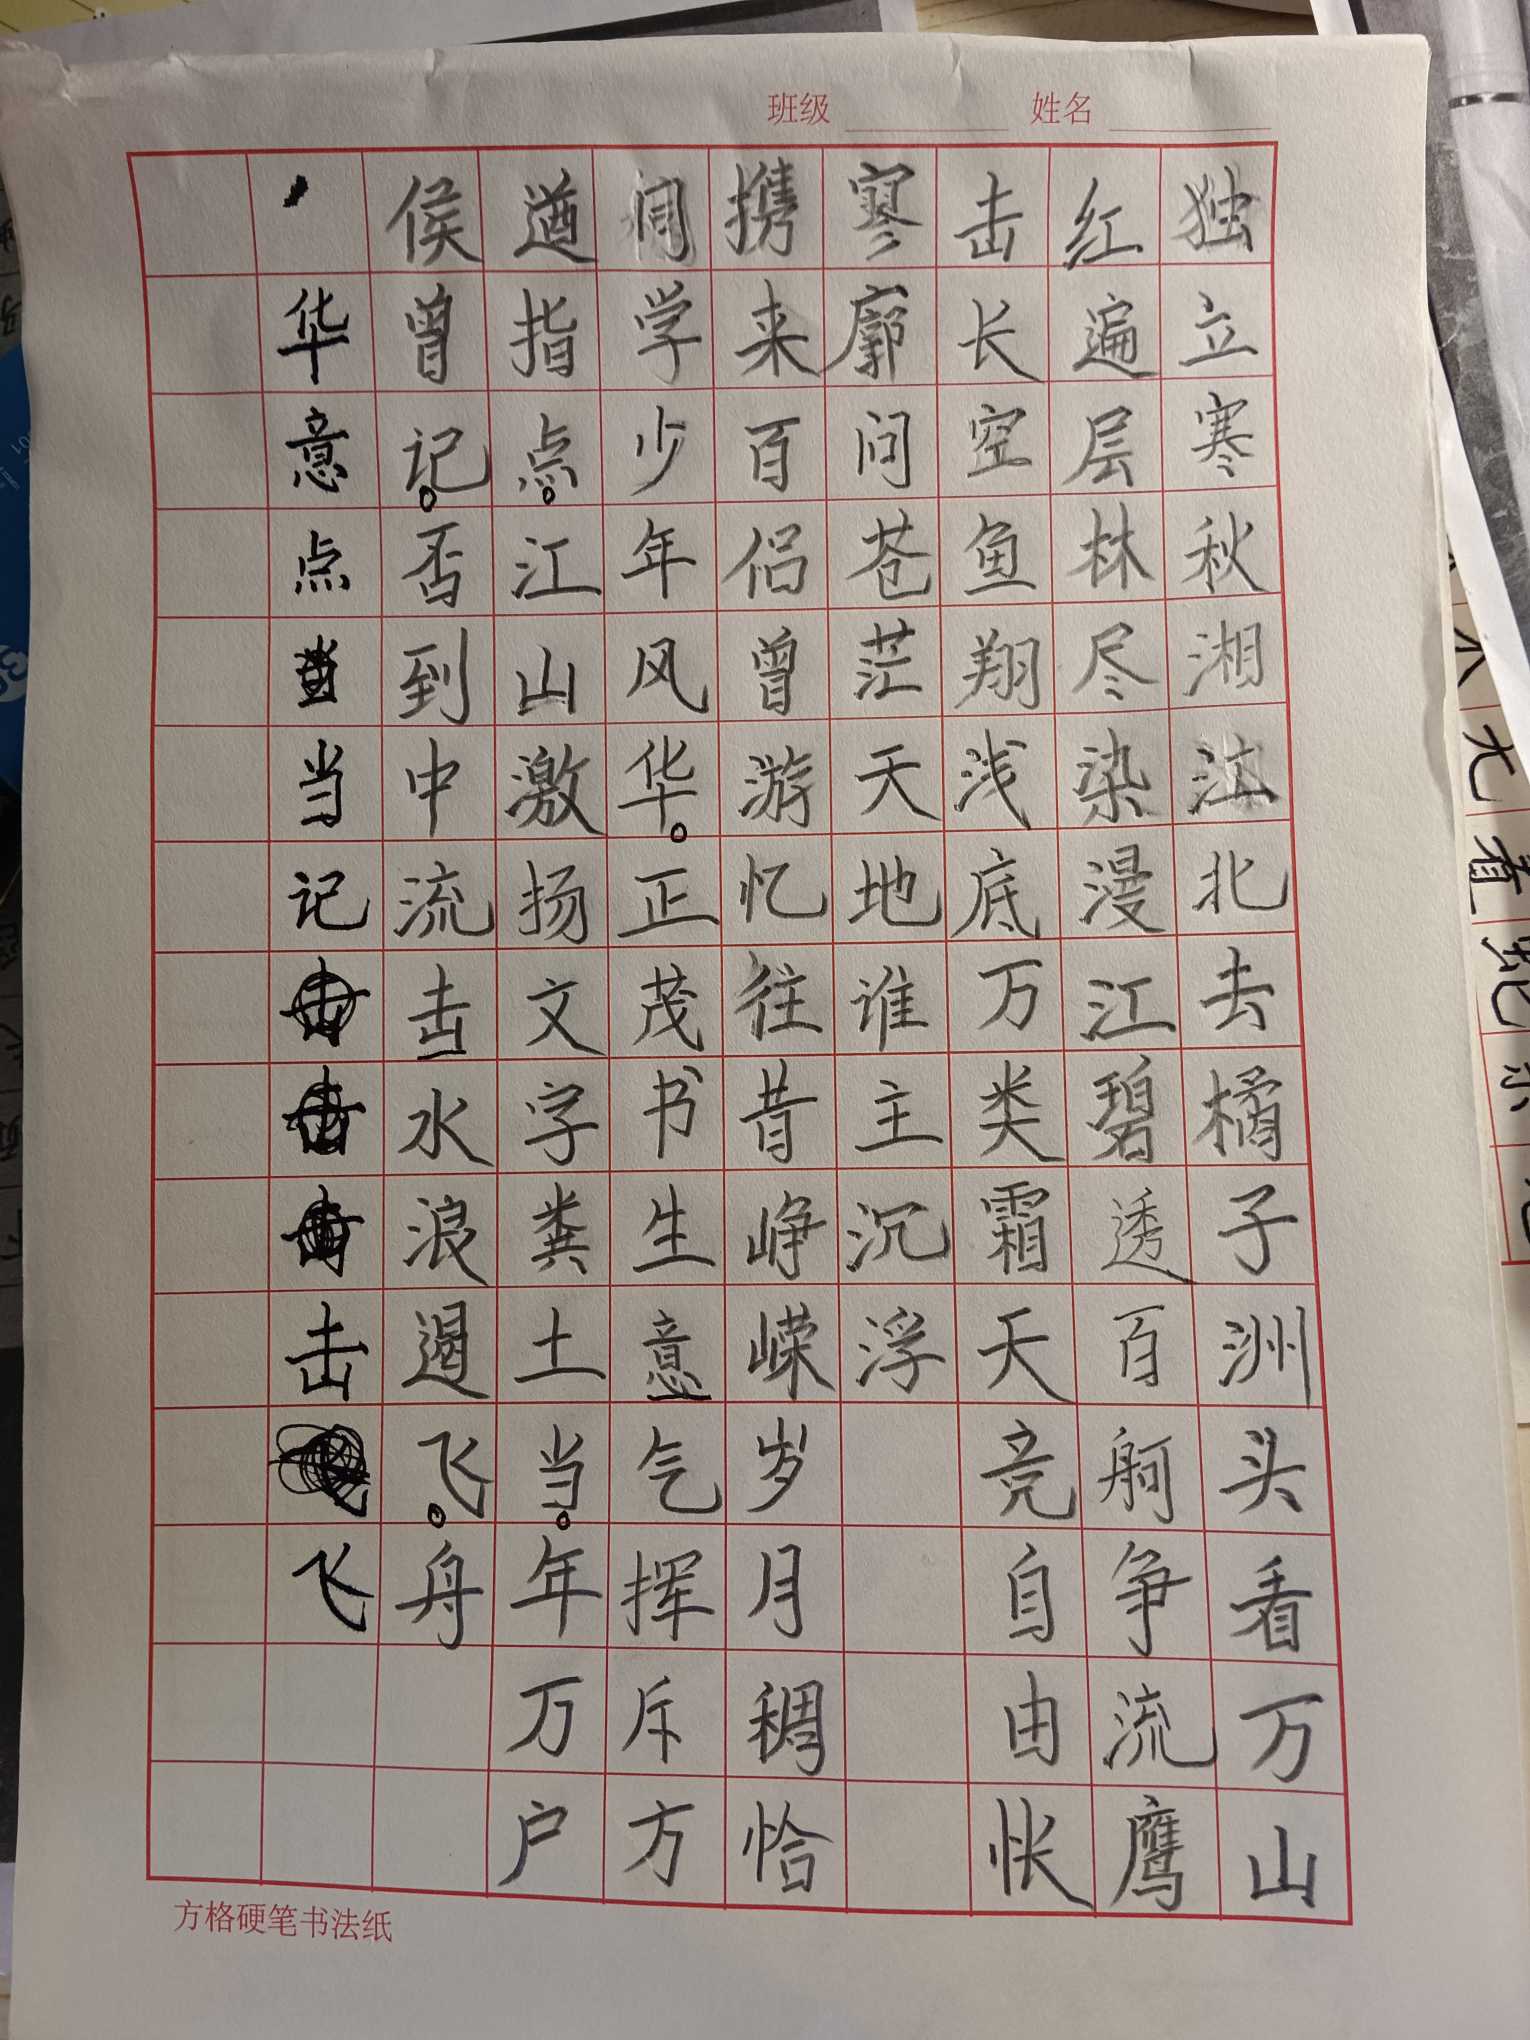 班级 姓名
独立寒秋湘江北去橘子洲头看万山
红遍层林尽染漫江碧透百舸争流鹰
击长空鱼翔浅底万类霜天竞自由怅
寥廓问苍茫天地谁主沉浮
携来百侣曾游忆往昔峥嵘岁月稠恰
同学少年风华。正茂书生意气挥斥方
遒指点。江山激扬文字粪土当。年万户
侯曾记。否到中流击水浪遏飞。舟
华意点当记击飞
方格硬笔书法纸